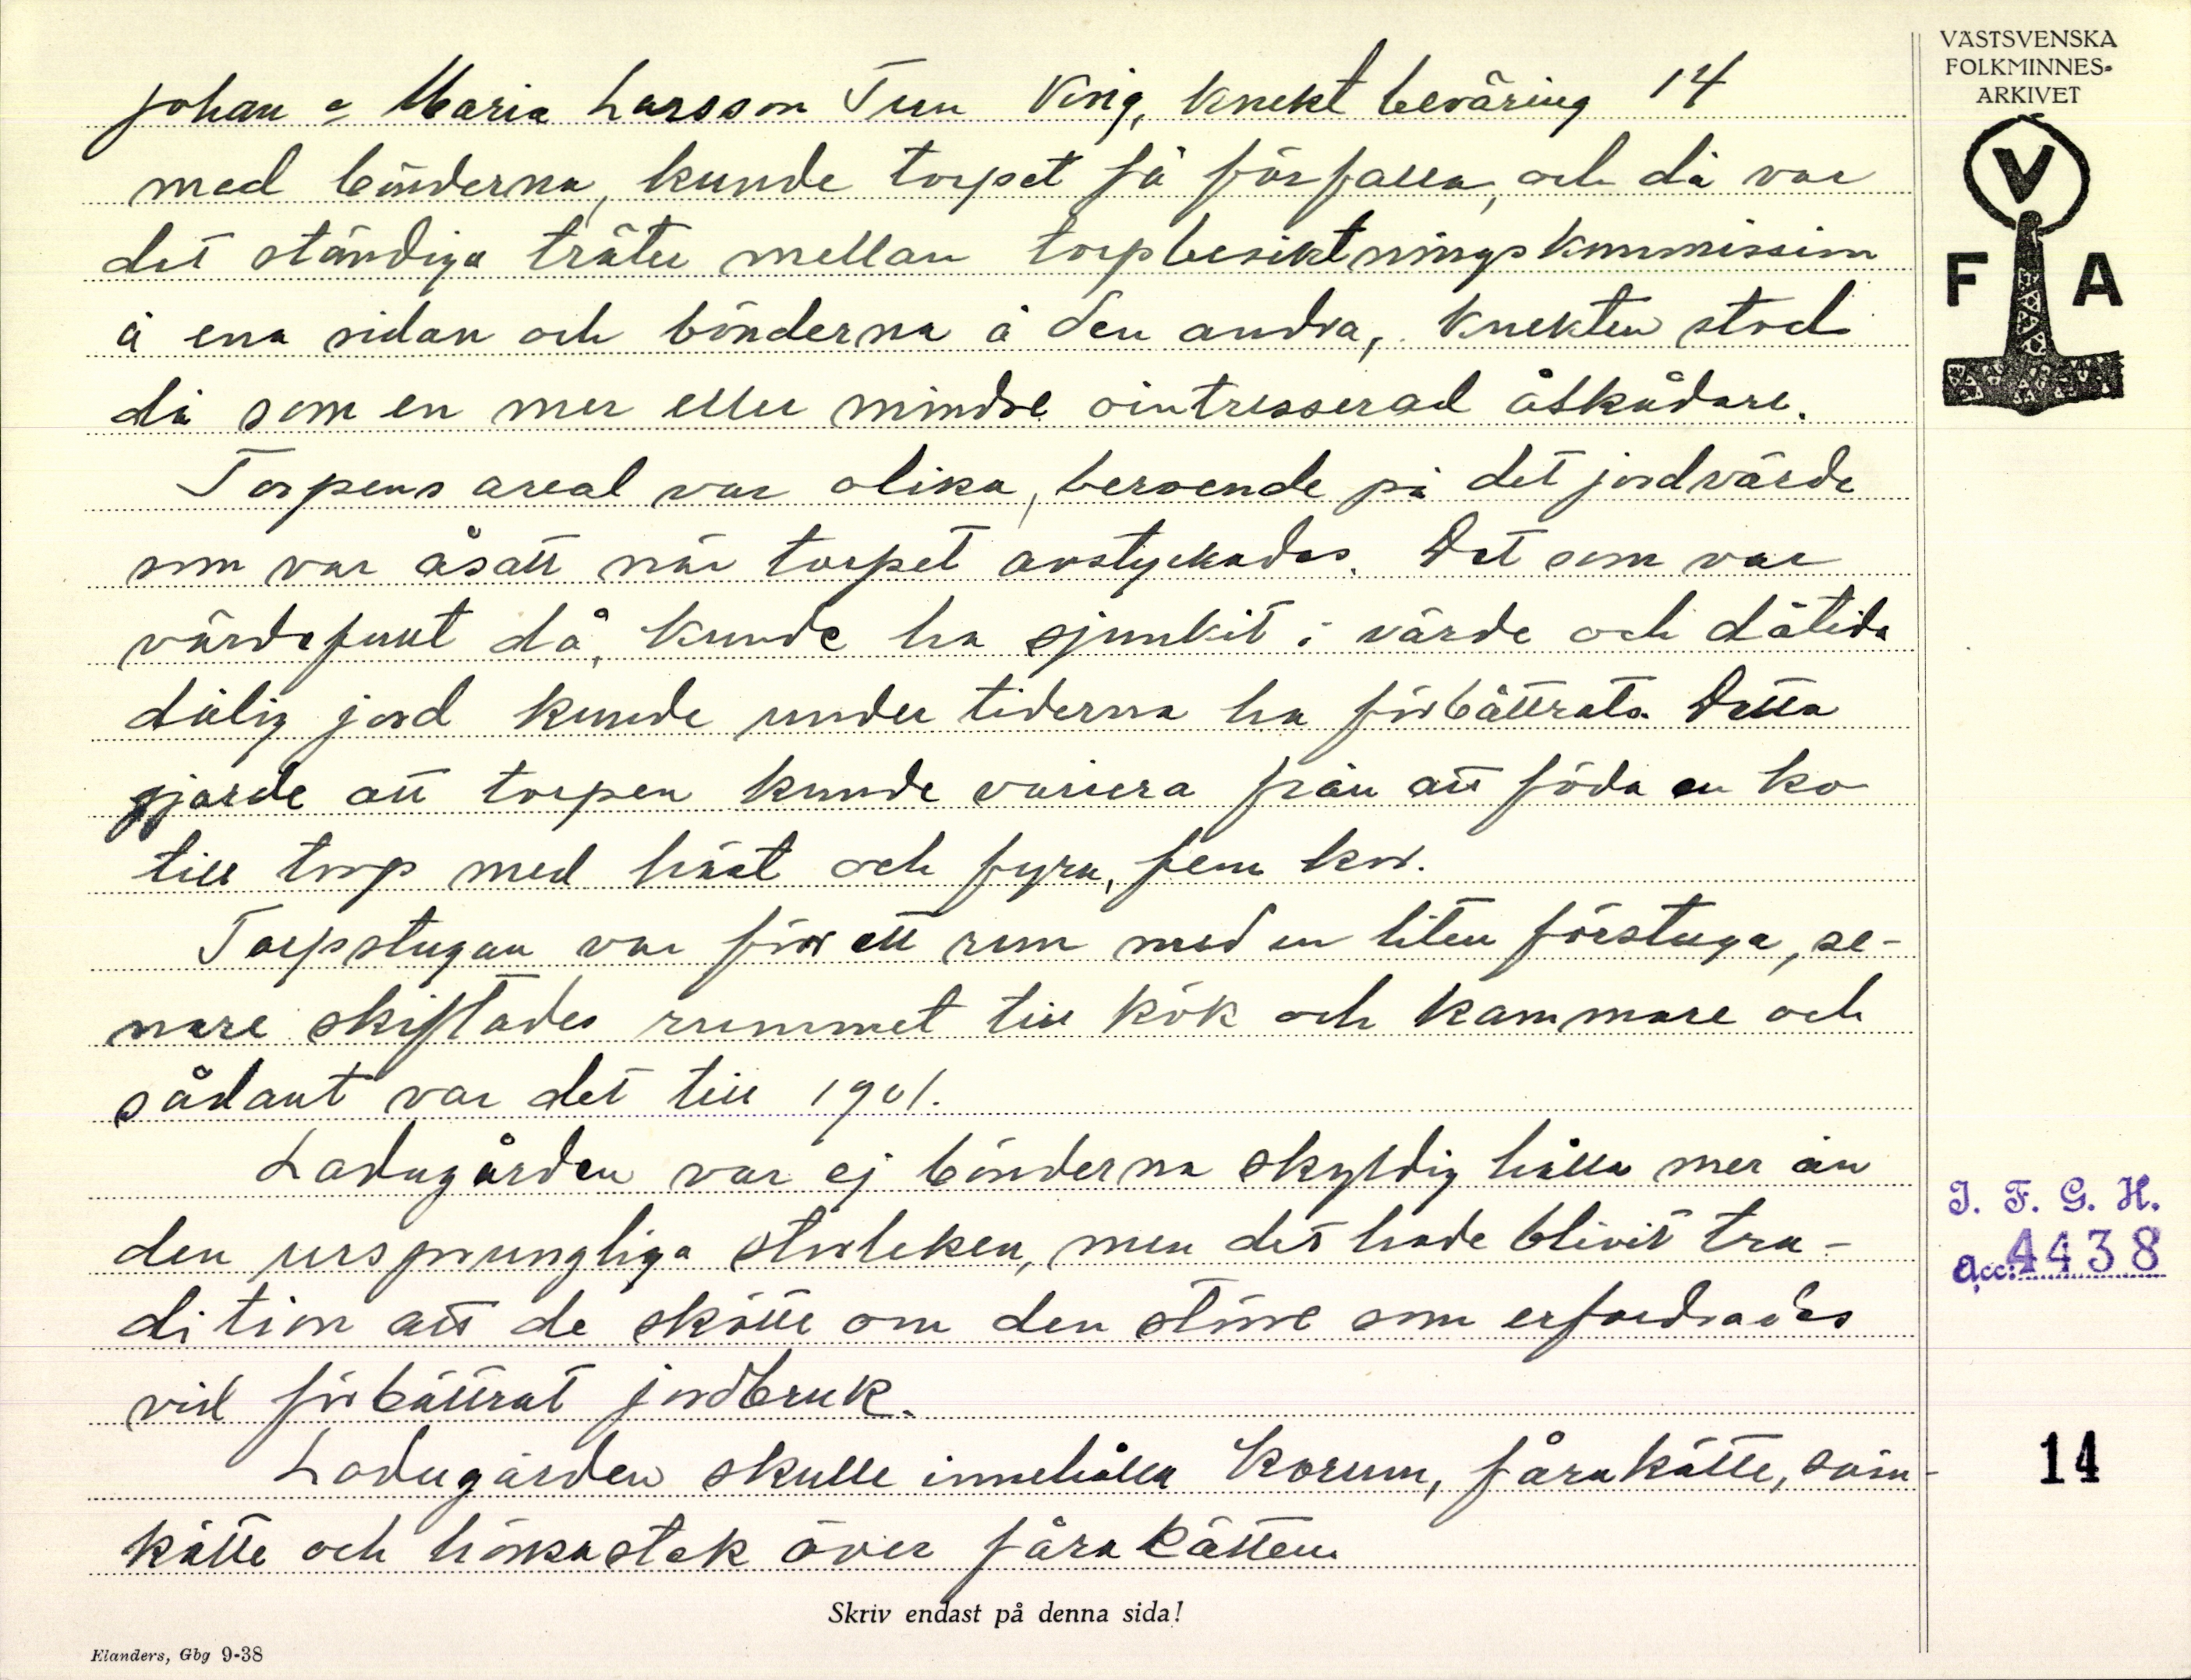 Johan o Maria Larsson Tun Krig, knekt beväring 14
med bönderna, kunde torpet få förfalla, och då var
det ständiga träter mellan torpbesiktningskommission
å ena sidan och bönderna å den andra, knekten stod
då som en mer eller mindre ointresserad åskådare.
Torpens areal var olika, beroende på det jordvärde
som var åsatt när torpet avstyckades. Det som var
värdefullt då, kunde ha sjunkit i värde och dåtida
dålig jord kunde under tiderna ha förbättrats. Detta
gjorde att torpen kunde variera från att föda en ko
till torp med häst och fyra, fem kor.
Torpstugan var förr ett rum med en liten förstuga, se-
nare skiftades rummet till kök och kammare och
sådant var det till 1901.
Ladugården var ej bönderna skyldig hålla mer än
den ursprungliga storleken, men det hade blivit tra-
dition att de skötte om den större som erfordrades
vid förbättrat jordbruk.
Ladugården skulle innehålla korum, fårakätte, svin-
kätte och hönsastek över fårakätten
Skriv endast på denna sida!
Elanders, Gbg 9-38
VÄSTSVENSKA
FOLKMINNES-
ARKIVET
V
F A
I. F. G. H.
Acc: 4438
14